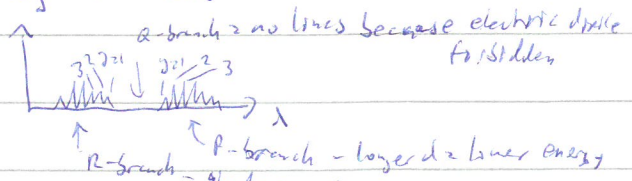 Q-branch = no lines because electric dipole
forbidden
3 2 J=1 J=1 2 3
λ
R-branch - P-branch - longer λ = lower energy